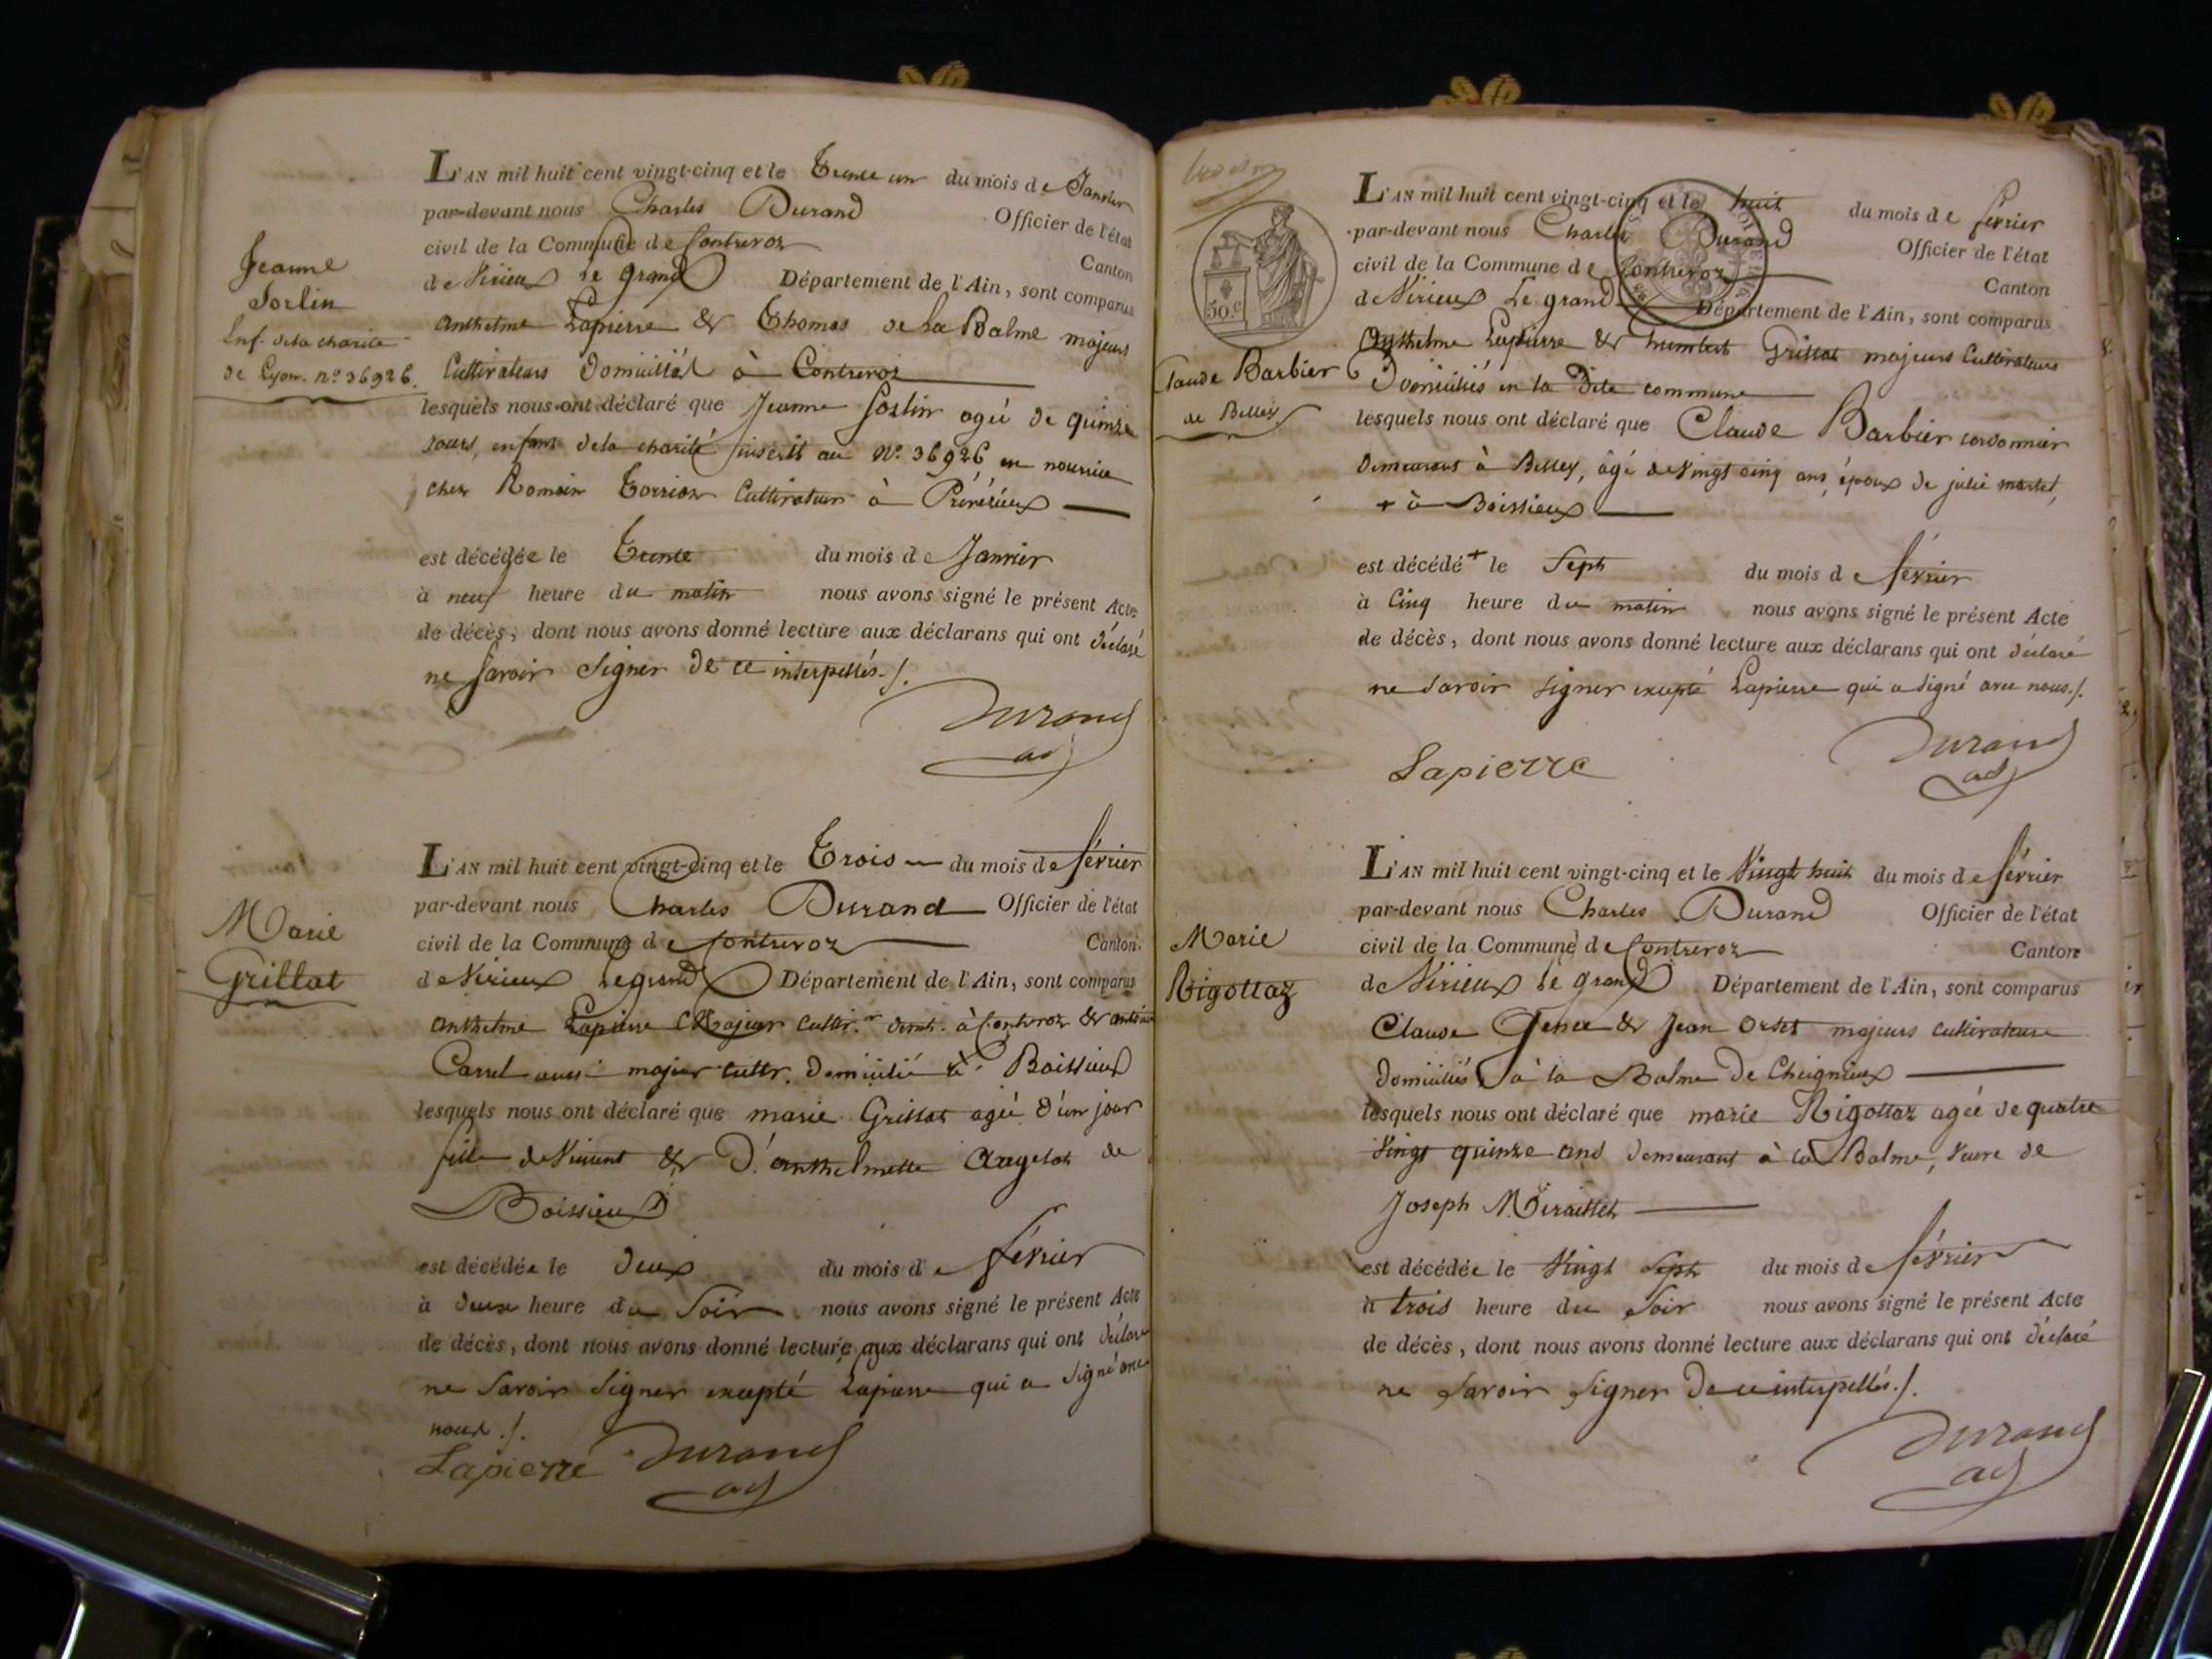 Jeanne
Sorlin
Enf. dela charité
de Lyon. nº 36926.
L'AN mil huit cent vingt-cinq et le Trente un du mois de Janvier
par-devant nous Charles Durand Officier de l'état
civil de la Commune de Contrevoz Canton
de Virieux le grand Département de l'Ain, sont comparus
anthelme Lapierre & Thomas de la Balme majeurs
Cultivateurs Domiciliés à Contrevoz
lesquels nous ont déclaré que Jeanne Sorlin agée de quinze
jours, enfant dela charité inscrit au Nº. 36926 en nourrice
chez Romain Torrion Cultivateur à Prémésieux
est décédée le Trente du mois de Janvier
à neuf heure du matin nous avons signé le présent Acte
de décès, dont nous avons donné lecture aux déclarans qui ont déclaré
ne savoir signer de ce interpellés./.
Durand
adj
Marie
Grillat
L'AN mil huit cent vingt-cinq et le Trois du mois de février
par-devant nous Charles Durand Officier de l'état
civil de la Commune de Contrevoz Canton
de Virieux Legrand Département de l'Ain, sont comparus
anthelme Lapierre Majeur cultr. demt. à Contrevoz & antoine
Carrel aussi majeur cultr. domicilié à Boissieux
lesquels nous ont déclaré que marie Grillat agée d'un jour
fille de Vincent & D'anthelmette Augelot de
Boissieux
est décédée le deux du mois de février
à deux heure du Soir nous avons signé le présent Acte
de décès, dont nous avons donné lecture aux déclarans qui ont déclaré
ne Savoir Signer excepté Lapierre qui a Signé avec
nous ./.
Lapierre Durand
adj
50.c
Claude Barbier
de Belley
L'AN mil huit cent vingt-cinq et le huit du mois de février
par-devant nous Charles Durand Officier de l'état
civil de la Commune de Contrevoz Canton
de Virieux Le grand Département de l'Ain, sont comparus
Anthelme Lapierre & humbert Grillat majeurs Cultivateurs
Domiciliés en la Dite commune
lesquels nous ont déclaré que Claude Barbier cordonnier
demeurant à Belley, âgé de Vingt cinq ans, époux de julie martel,
+ à Boissieux
est décédé + le Sept du mois de février
à Cinq heure du matin nous avons signé le présent Acte
de décès, dont nous avons donné lecture aux déclarans qui ont déclaré
ne Savoir signer excepté Lapierre qui a signé avec nous./.
Lapierre Durand
adj
Marie
Rigottaz
L'AN mil huit cent vingt-cinq et le Vingt huit du mois de février
par-devant nous Charles Durand Officier de l'état
civil de la Commune de Contrevoz Canton
de Virieux le grand Département de l'Ain, sont comparus
Claude Jenee & Jean Orset majeurs cultivateurs
domiciliés à la Balme De Cheignieux
lesquels nous ont déclaré que marie Rigottaz agée de quatre
Vingt quinze ans demeurant à la Balme, Veuve de
Joseph Miraillet
est décédée le Vingt Sept du mois de février
à trois heure du Soir nous avons signé le présent Acte
de décès, dont nous avons donné lecture aux déclarans qui ont déclaré
ne Savoir Signer De ce interpellés./.
Durand
adj